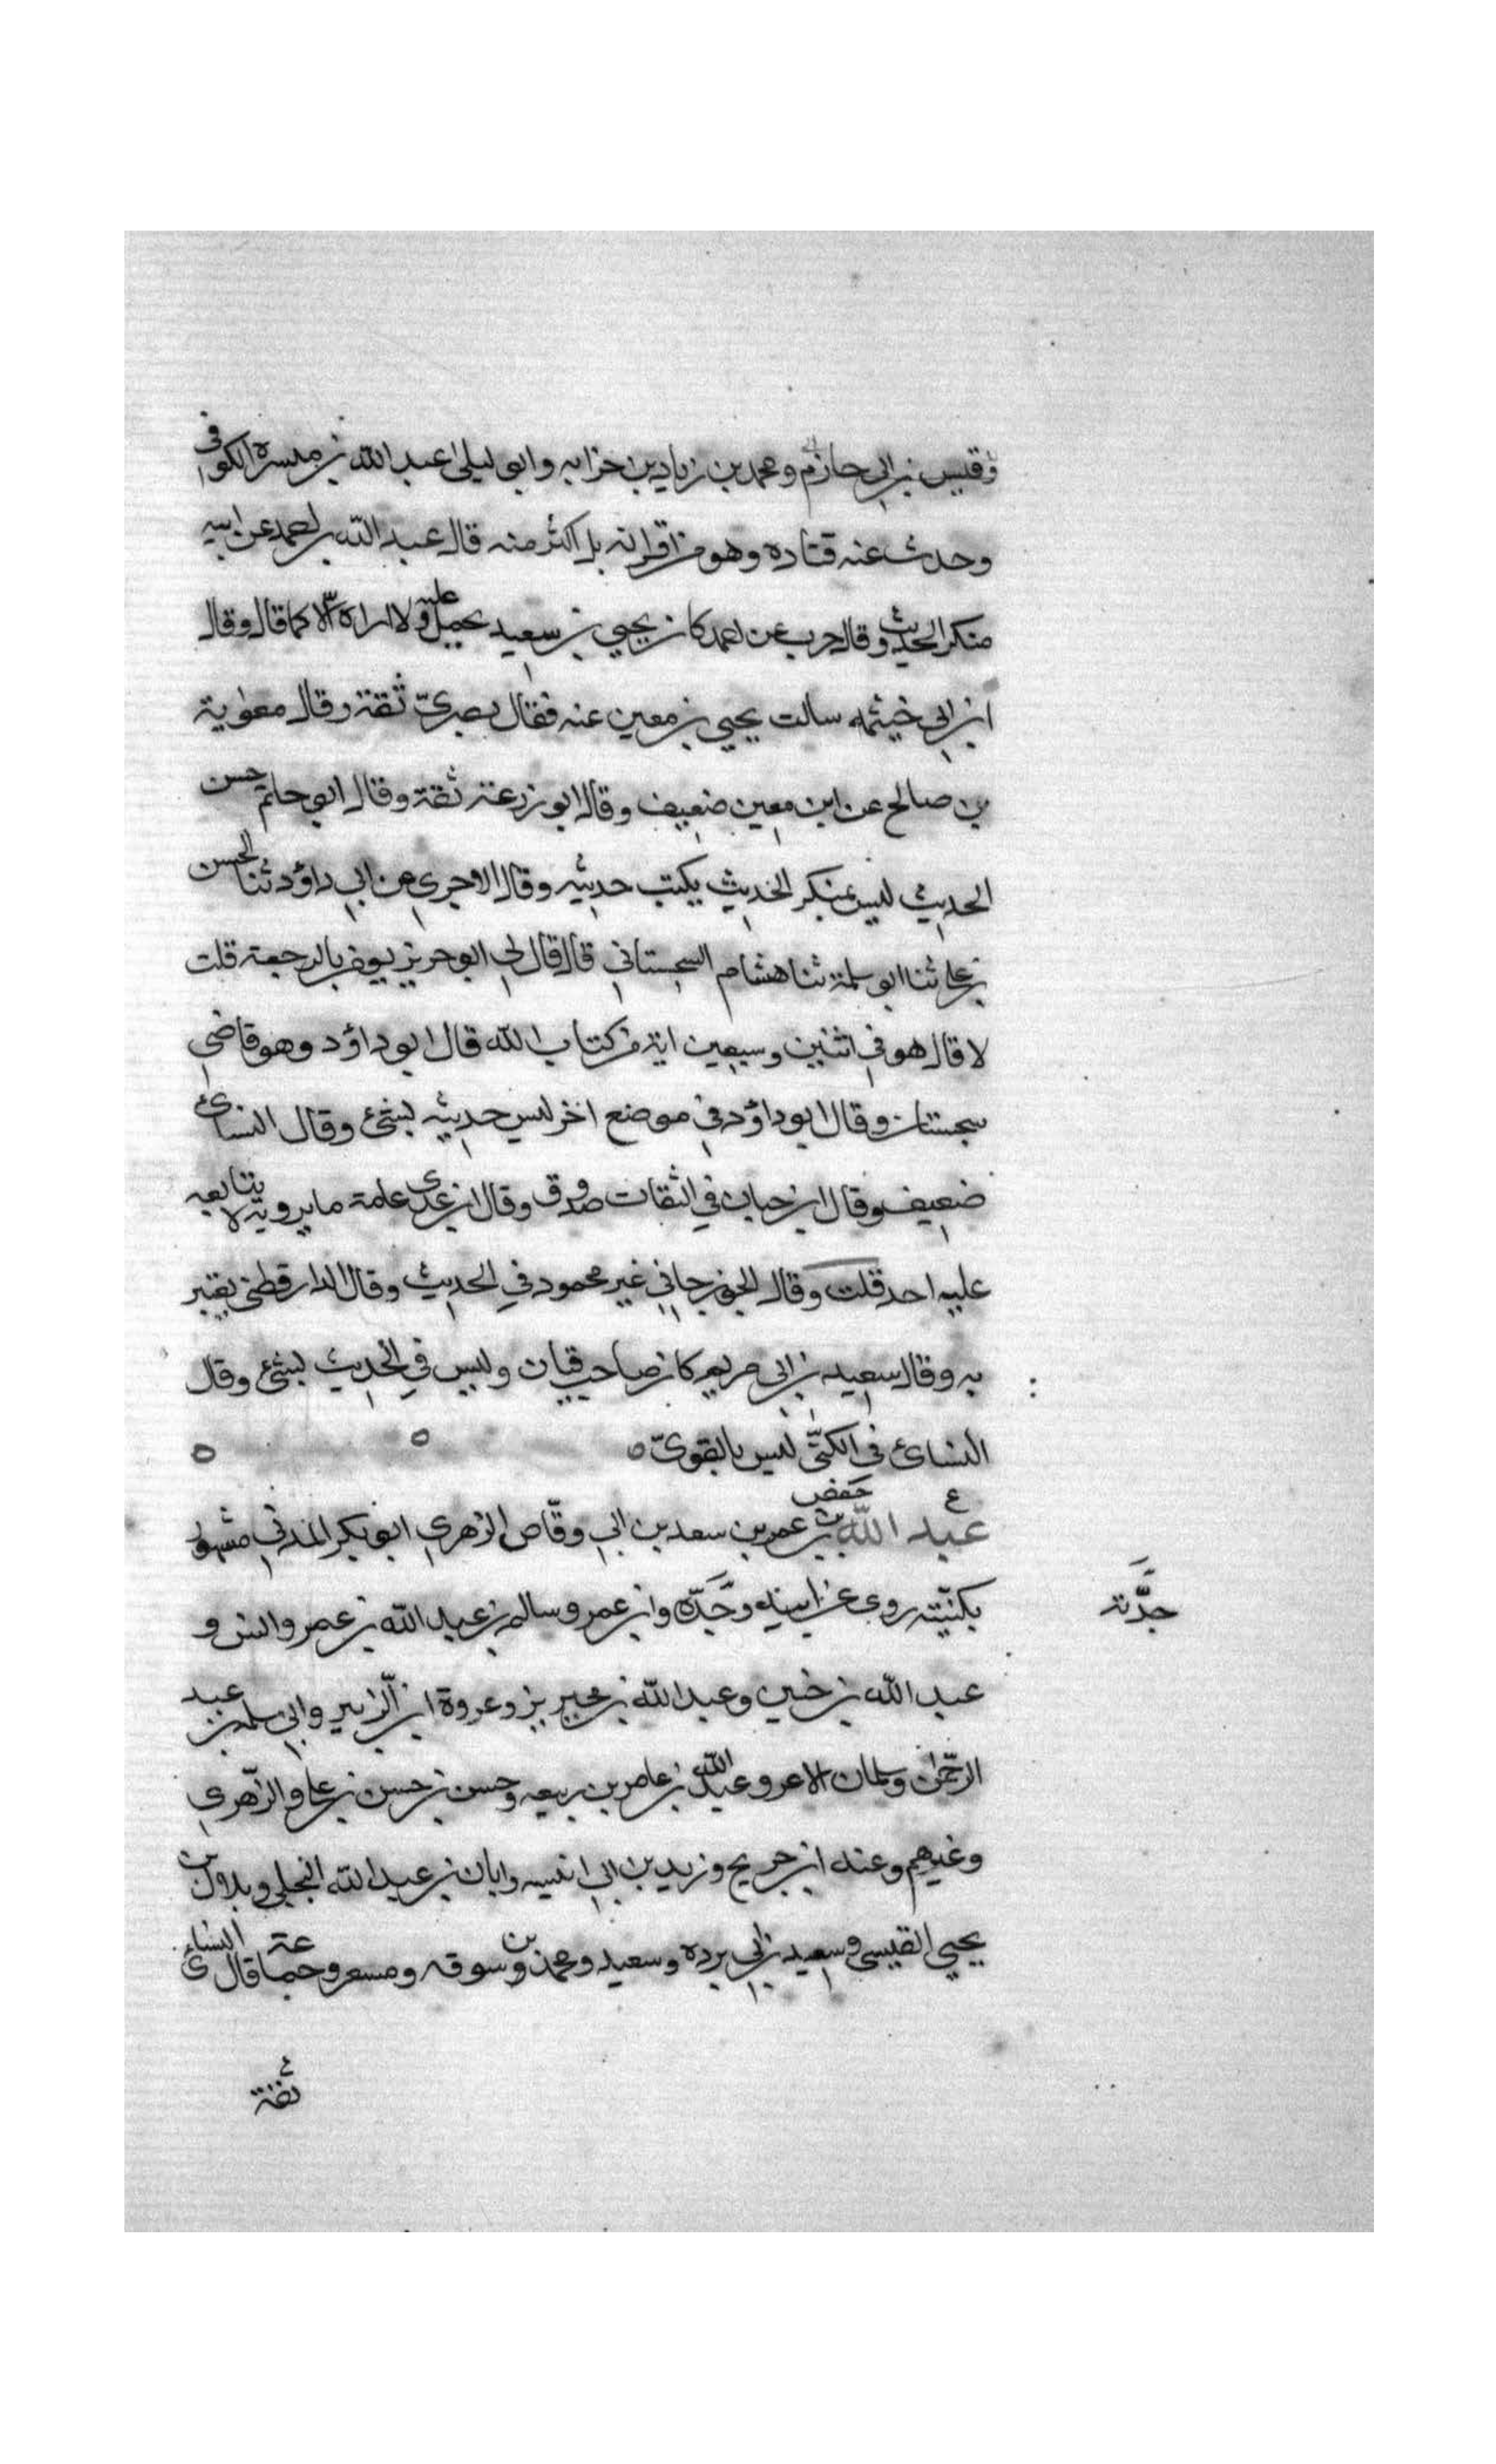 وقيس بن ابي حازم ومحمد بن زياد بن خزابه وابي ليلى عبد الله بن ميسرة الكوفي
وحدث عنه قتاده وهو من اقرانه بل اكثر منه قال عبد الله بن احمد عن ابيه
منكر الحديث وقال حرب عن احمد كان يحيي بن سعيد يحمل عليه ولا اراه الا كما قال وقال
ابن ابي خيثمه سالت يحيي بن معين عنه فقال بصريّ ثقة وقال معوية
بن صالح عن ابن معين ضعيف وقال ابو زرعة ثقة وقال ابو حاتم حسن
الحديث ليس بمنكر الحديث يكتب حديثه وقال الاجري عن ابي داؤد ثنا الحسن
بن علي ثنا ابو سلمة ثنا هشام السجستاني قال قال لي ابو حريز يومن بالرجعة قلت
لا قال هو في اثنين وسبعين اية من كتاب الله قال ابو داؤد وهو قاضي
سجستان وقال ابو داؤد في موضع اخر ليس حديثه بشئ وقال النسائ
ضعيف وقال ابن حبان في الثقات صدوق وقال ابن عدي عامة ما يرويه لا يتابعه
عليه احد قلت وقال الجوزجاني غير محمود في الحديث وقال الدارقطني يعتبر
به وقال سعيد بن ابي مريم كان صاحب قيان وليس في الحديث بشئ وقال
النسائ في الكنى ليس بالقويّ ه ه ه
ع عبد الله بن حفص بن عمر بن سعد بن ابي وقّاص الزهري ابو بكر المدني مشهور
بكنيته روى عن ابيه وجَدّه وابن عمر وسالم بن عبد الله بن عمر وانس و
جدَّته
عبد الله بن حنين وعبد الله بن محيريز وعروة ابن الزبير وابي سلمة بن عبد
الرحمن وسلمان الاغر وعبد الله بن عامر بن ربيعه وحسن بن حسن بن علي والزّهري
وغيرهم وعنه ابن جريج وزيد بن ابي انيسه وابان بن عبد الله البجلي وبلال بن
يحيي القيسي وسعيد بن ابي برده وسعيد ومحمد بن سوقه ومسعر وجماعة قال النسائ
ثقة